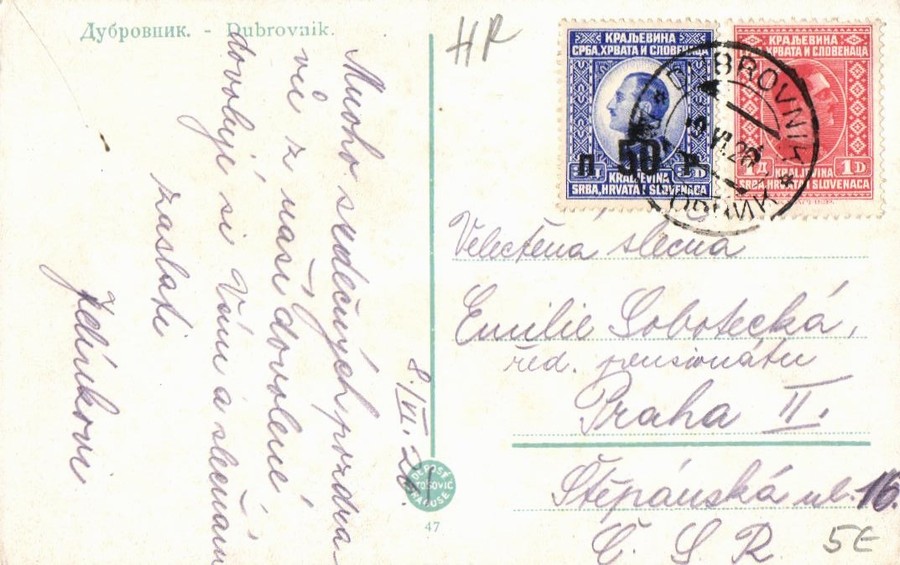 Дубровник. - Dubrovnik.
HR
КРАЉЕВИНА
СРБА, ХРВАТА И СЛОВЕНАЦА
50
П Р
KRALJEVINA
SRBA, HRVATA I SLOVENACA
КРАЉЕВИНА
ХРВАТА И СЛОВЕНАЦА
1Д 1D
KRALJEVINA
SRBA, HRVATA I SLOVENACA
DUBROVNIK
VI. 26
Mnoho srdečných pozdra-
vů z naší dovolené
dovoluji si Vám a slečnám
zaslati
Jelínkovi
8./VI. 26.
47
Velectěna slečna
Emilie Sobotecká,
řed. pensionátu
Praha II.
Štěpánská ul. 16.
Č. S. R.
5E